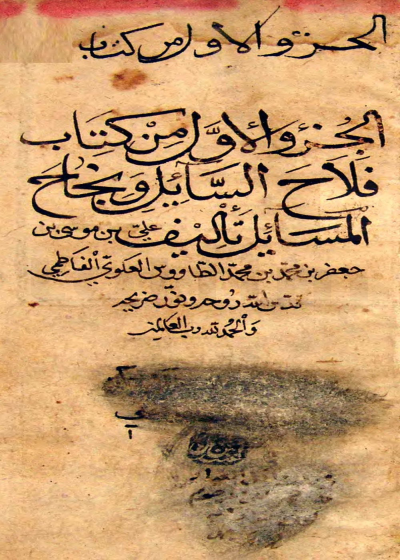 الجزؤ الاول من كتاب
الجُزؤ الأوَّل مِنْ كِتَاب
فَلَاحَ السَّآئِل وَنَجَاحَ
المَسَآئِل تَألِيف علي بن موسى بن
جعفر بن محمد بن محمد الطاووس العلوي الفاطمي
قدس الله روحه ونور ضريحه
والحمد لله رب العالمين